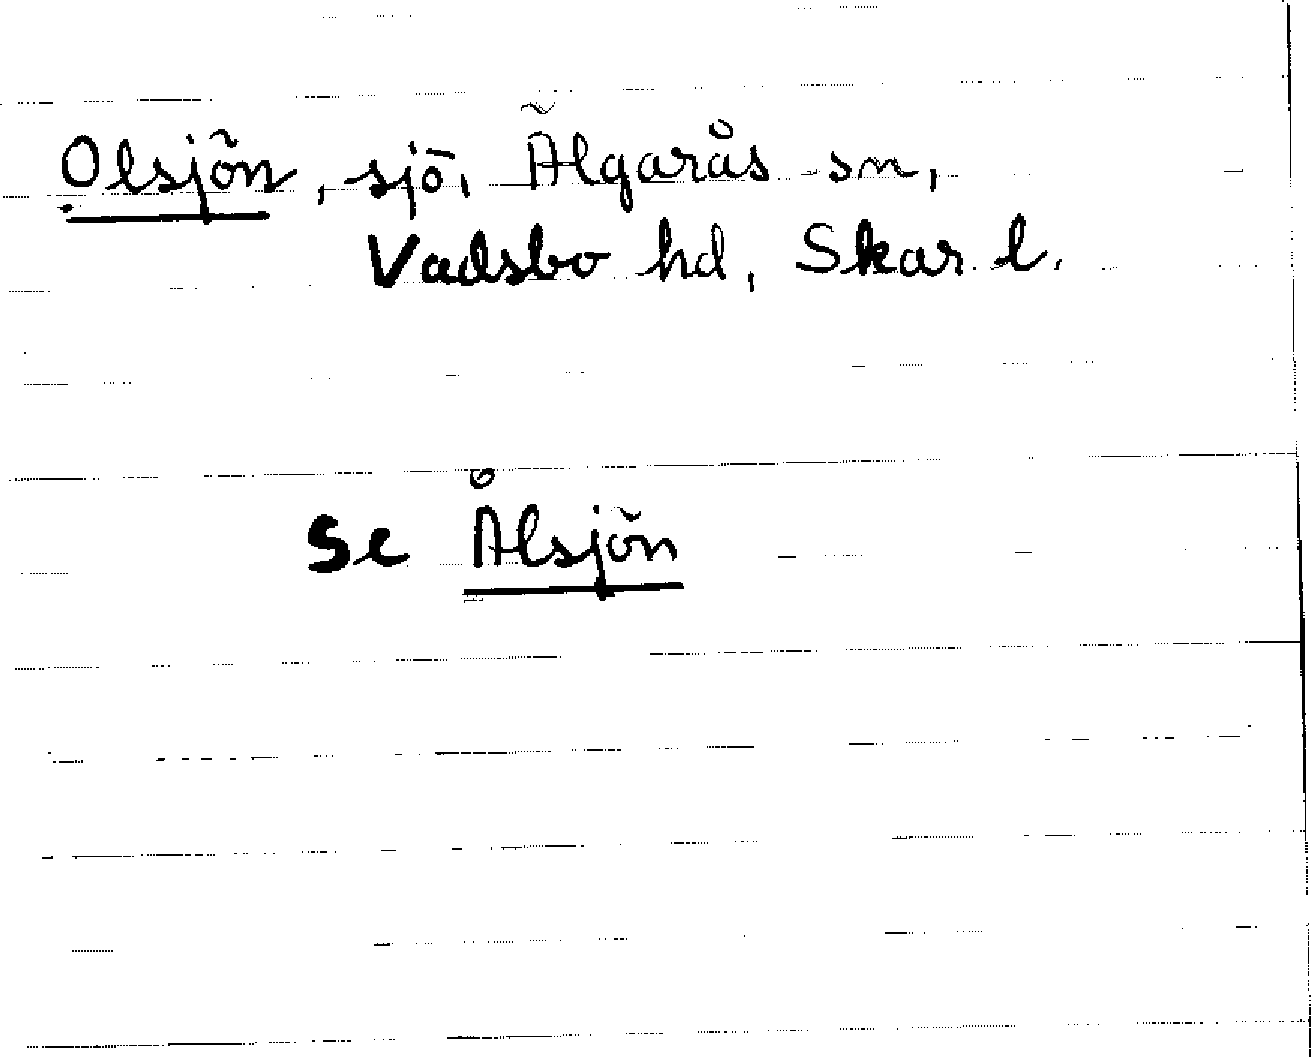 Olsjön, sjö, Älgarås sn,
Vadsbo hd, Skar. l.
Se Ålsjön